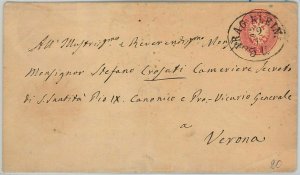 PRAG KLEIN
All' Illustris.mo e Reverendis.mo Mon
Monsignor Stefano Crosati Cameriere Secreto
di S. Santità Pio IX. Canonico e Pro-Vicario Generale
a
Verona
20